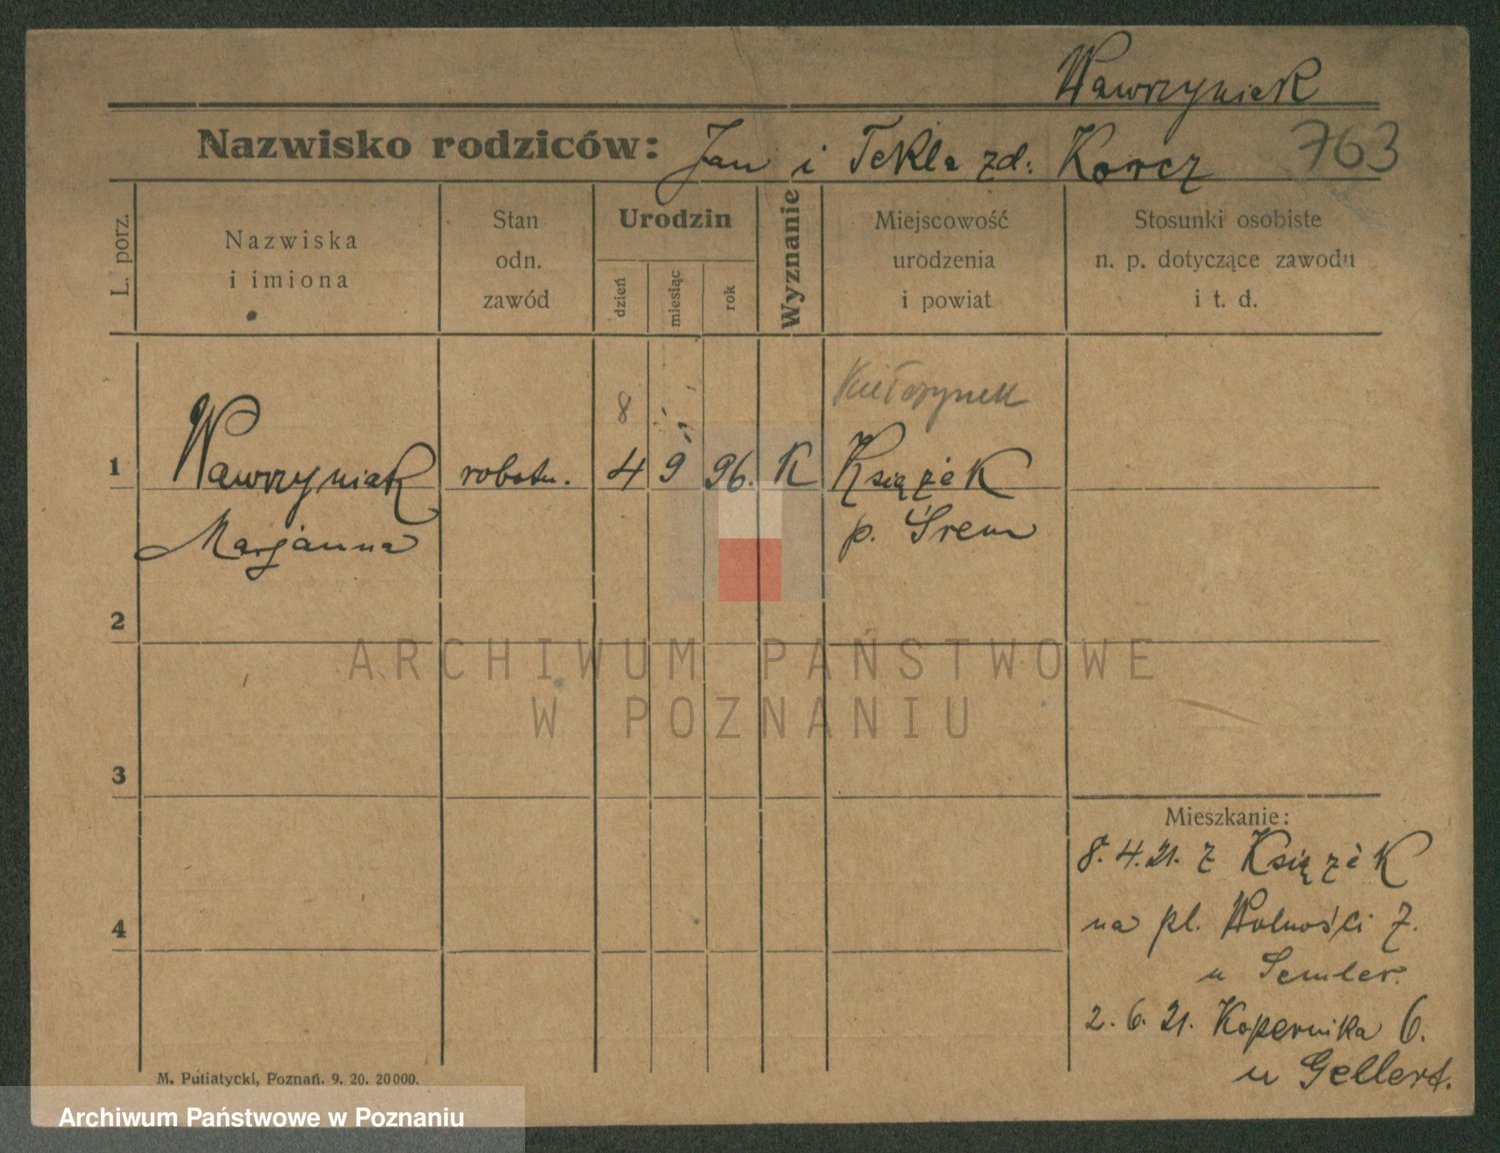 Wawrzyniak
Nazwisko rodziców: Jan i Tekla zd. Korcz 763
L. porz.
Nazwiska
i imiona
Stan
odn.
zawód
Urodzin
dzień
miesiąc
rok
Wyznanie
Miejscowość
urodzenia
i powiat
Stosunki osobiste
n. p. dotyczące zawodu
i t. d.
8
1 Wawrzyniak robotn. 4 9 96. K Książek
Marjanna p. Śrem
2
3
4
Mieszkanie:
8.4.21. z Książek
na pl. Wolności 7.
u Semler.
2.6.21. Kopernika 6.
u Gellert.
M. Putiatycki, Poznań. 9. 20. 20000.
ARCHIWUM PAŃSTWOWE
W POZNANIU
Archiwum Państwowe w Poznaniu